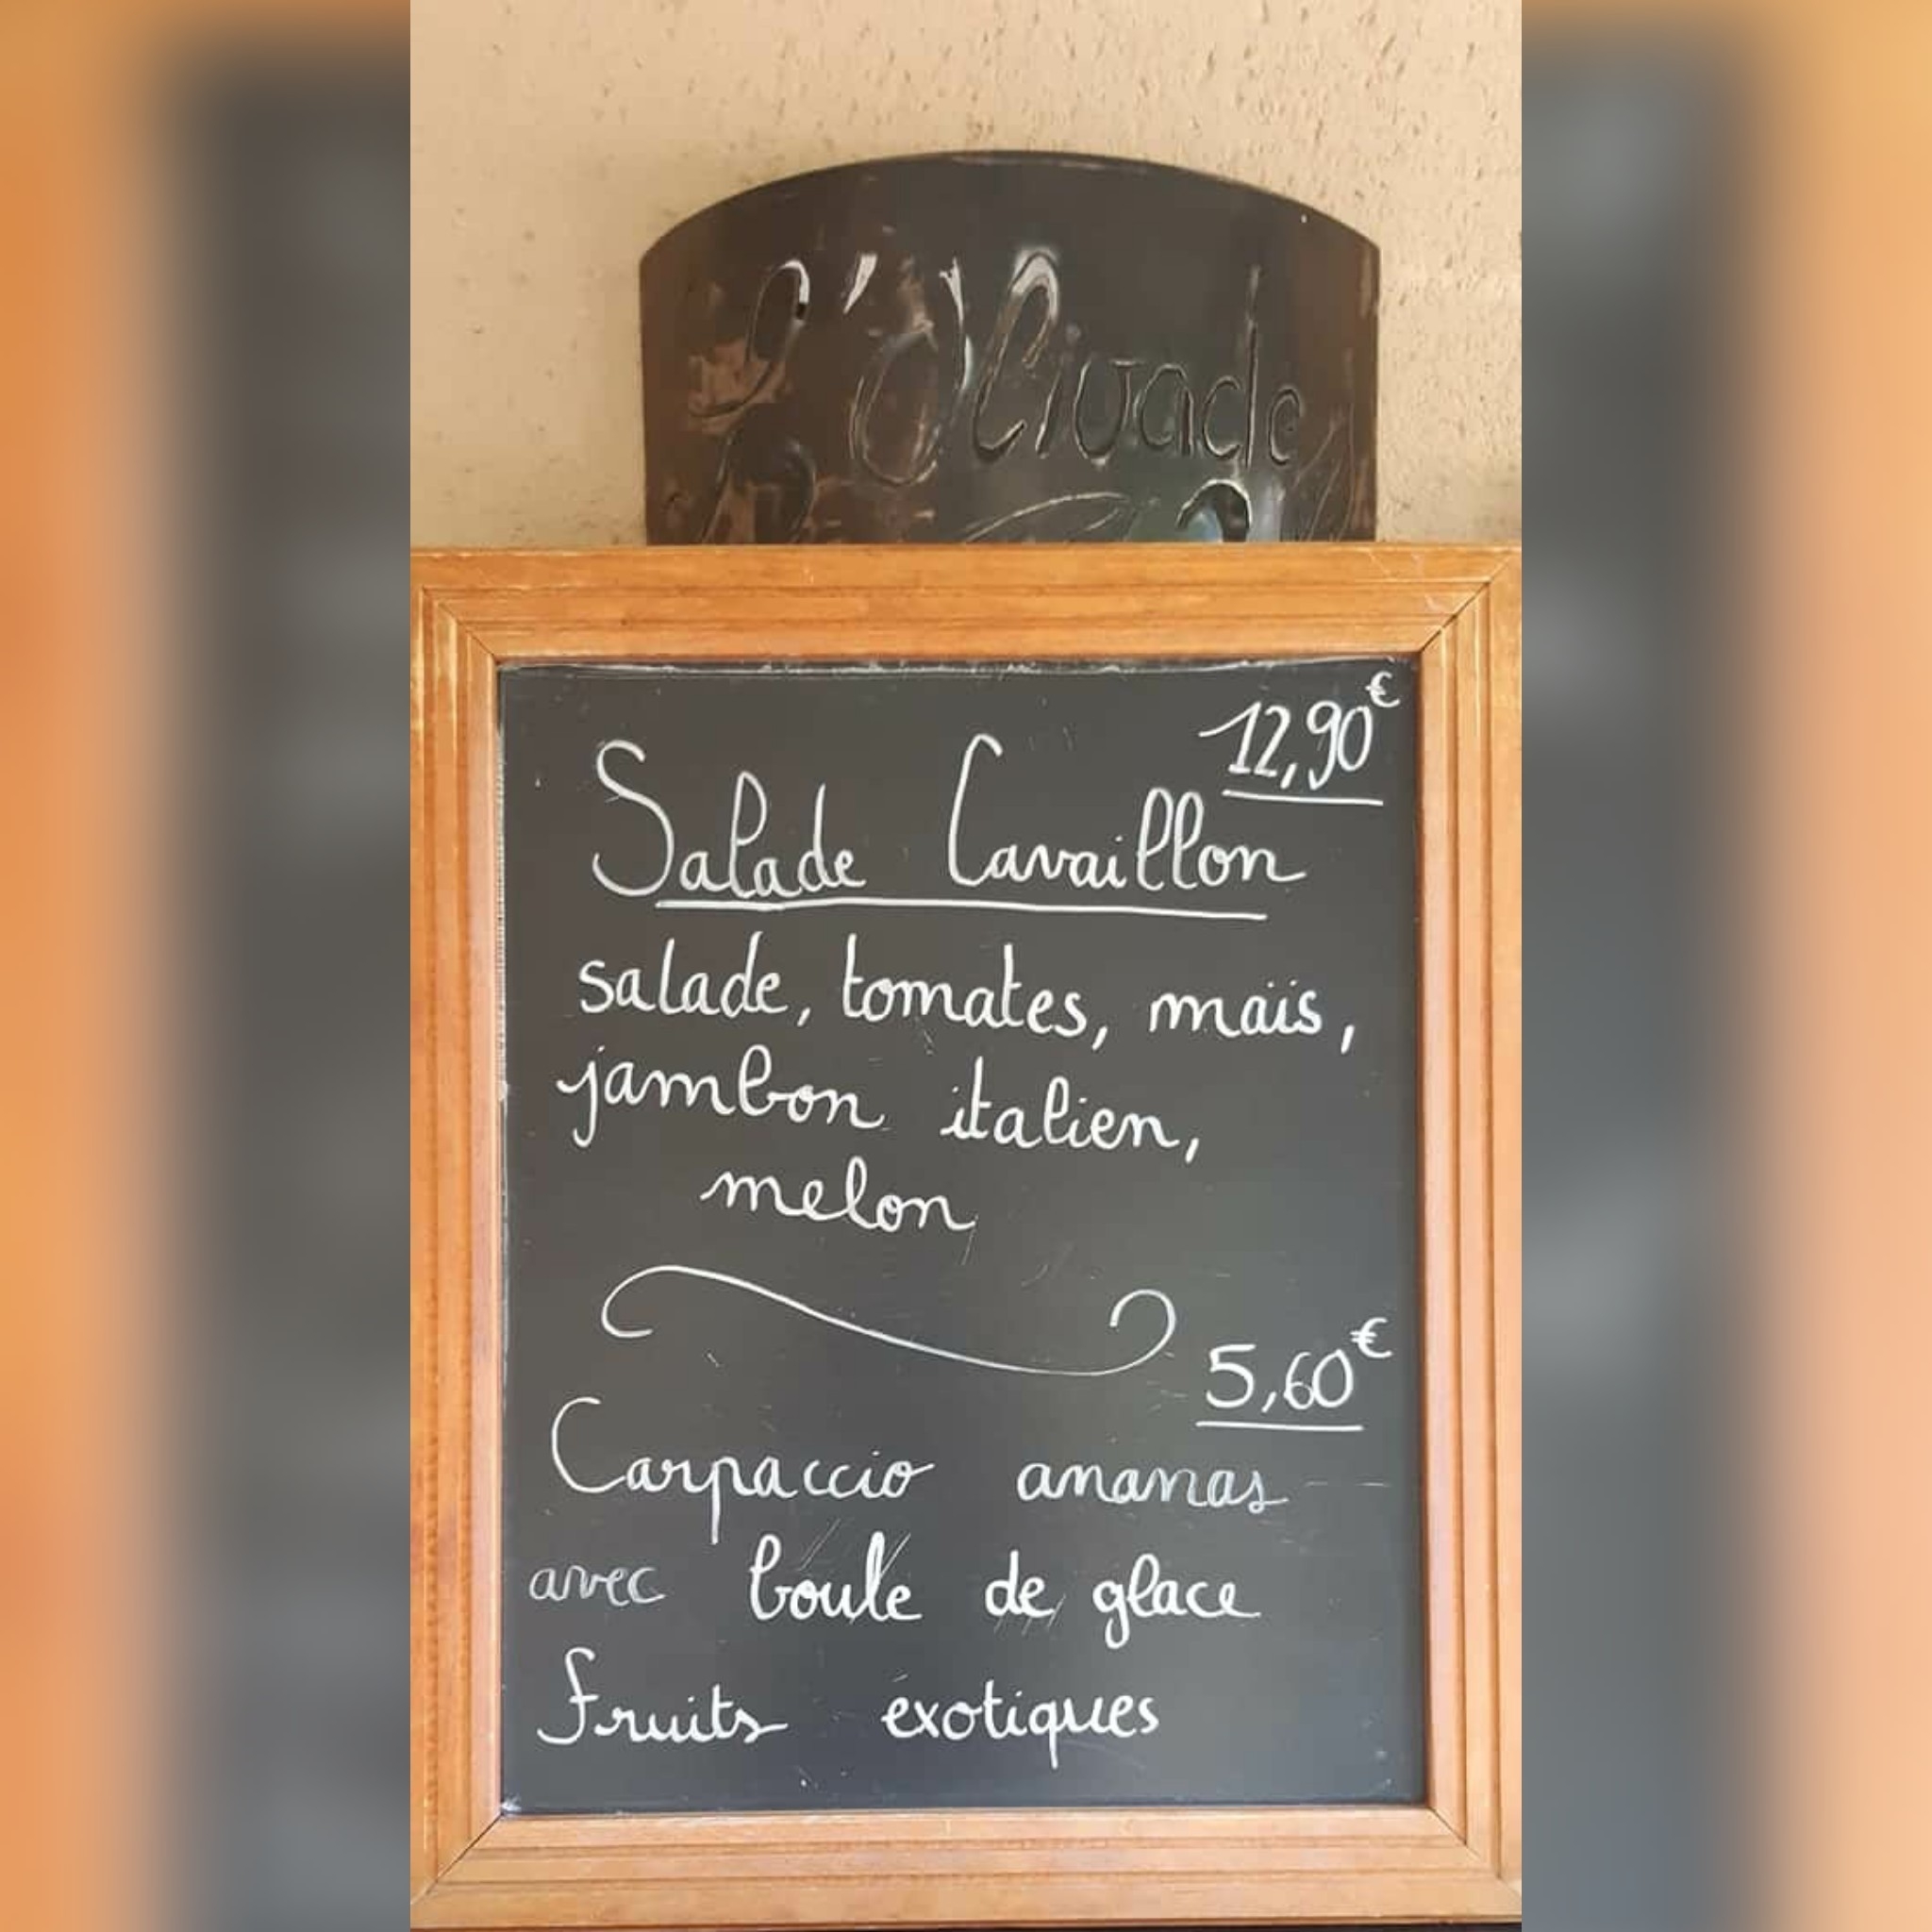 L'Olivade
12,90€
Salade Cavaillon
salade, tomates, maïs,
jambon italien,
melon
5,60€
Carpaccio ananas
avec boule de glace
Fruits éxotiques